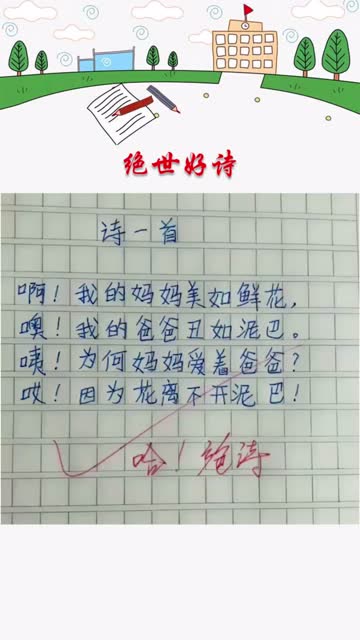 绝世好诗
诗一首
啊！我的妈妈美如鲜花，
噢！我的爸爸丑如泥巴。
咦！为何妈妈爱着爸爸？
哎！因为花离不开泥巴！
哈！绝诗